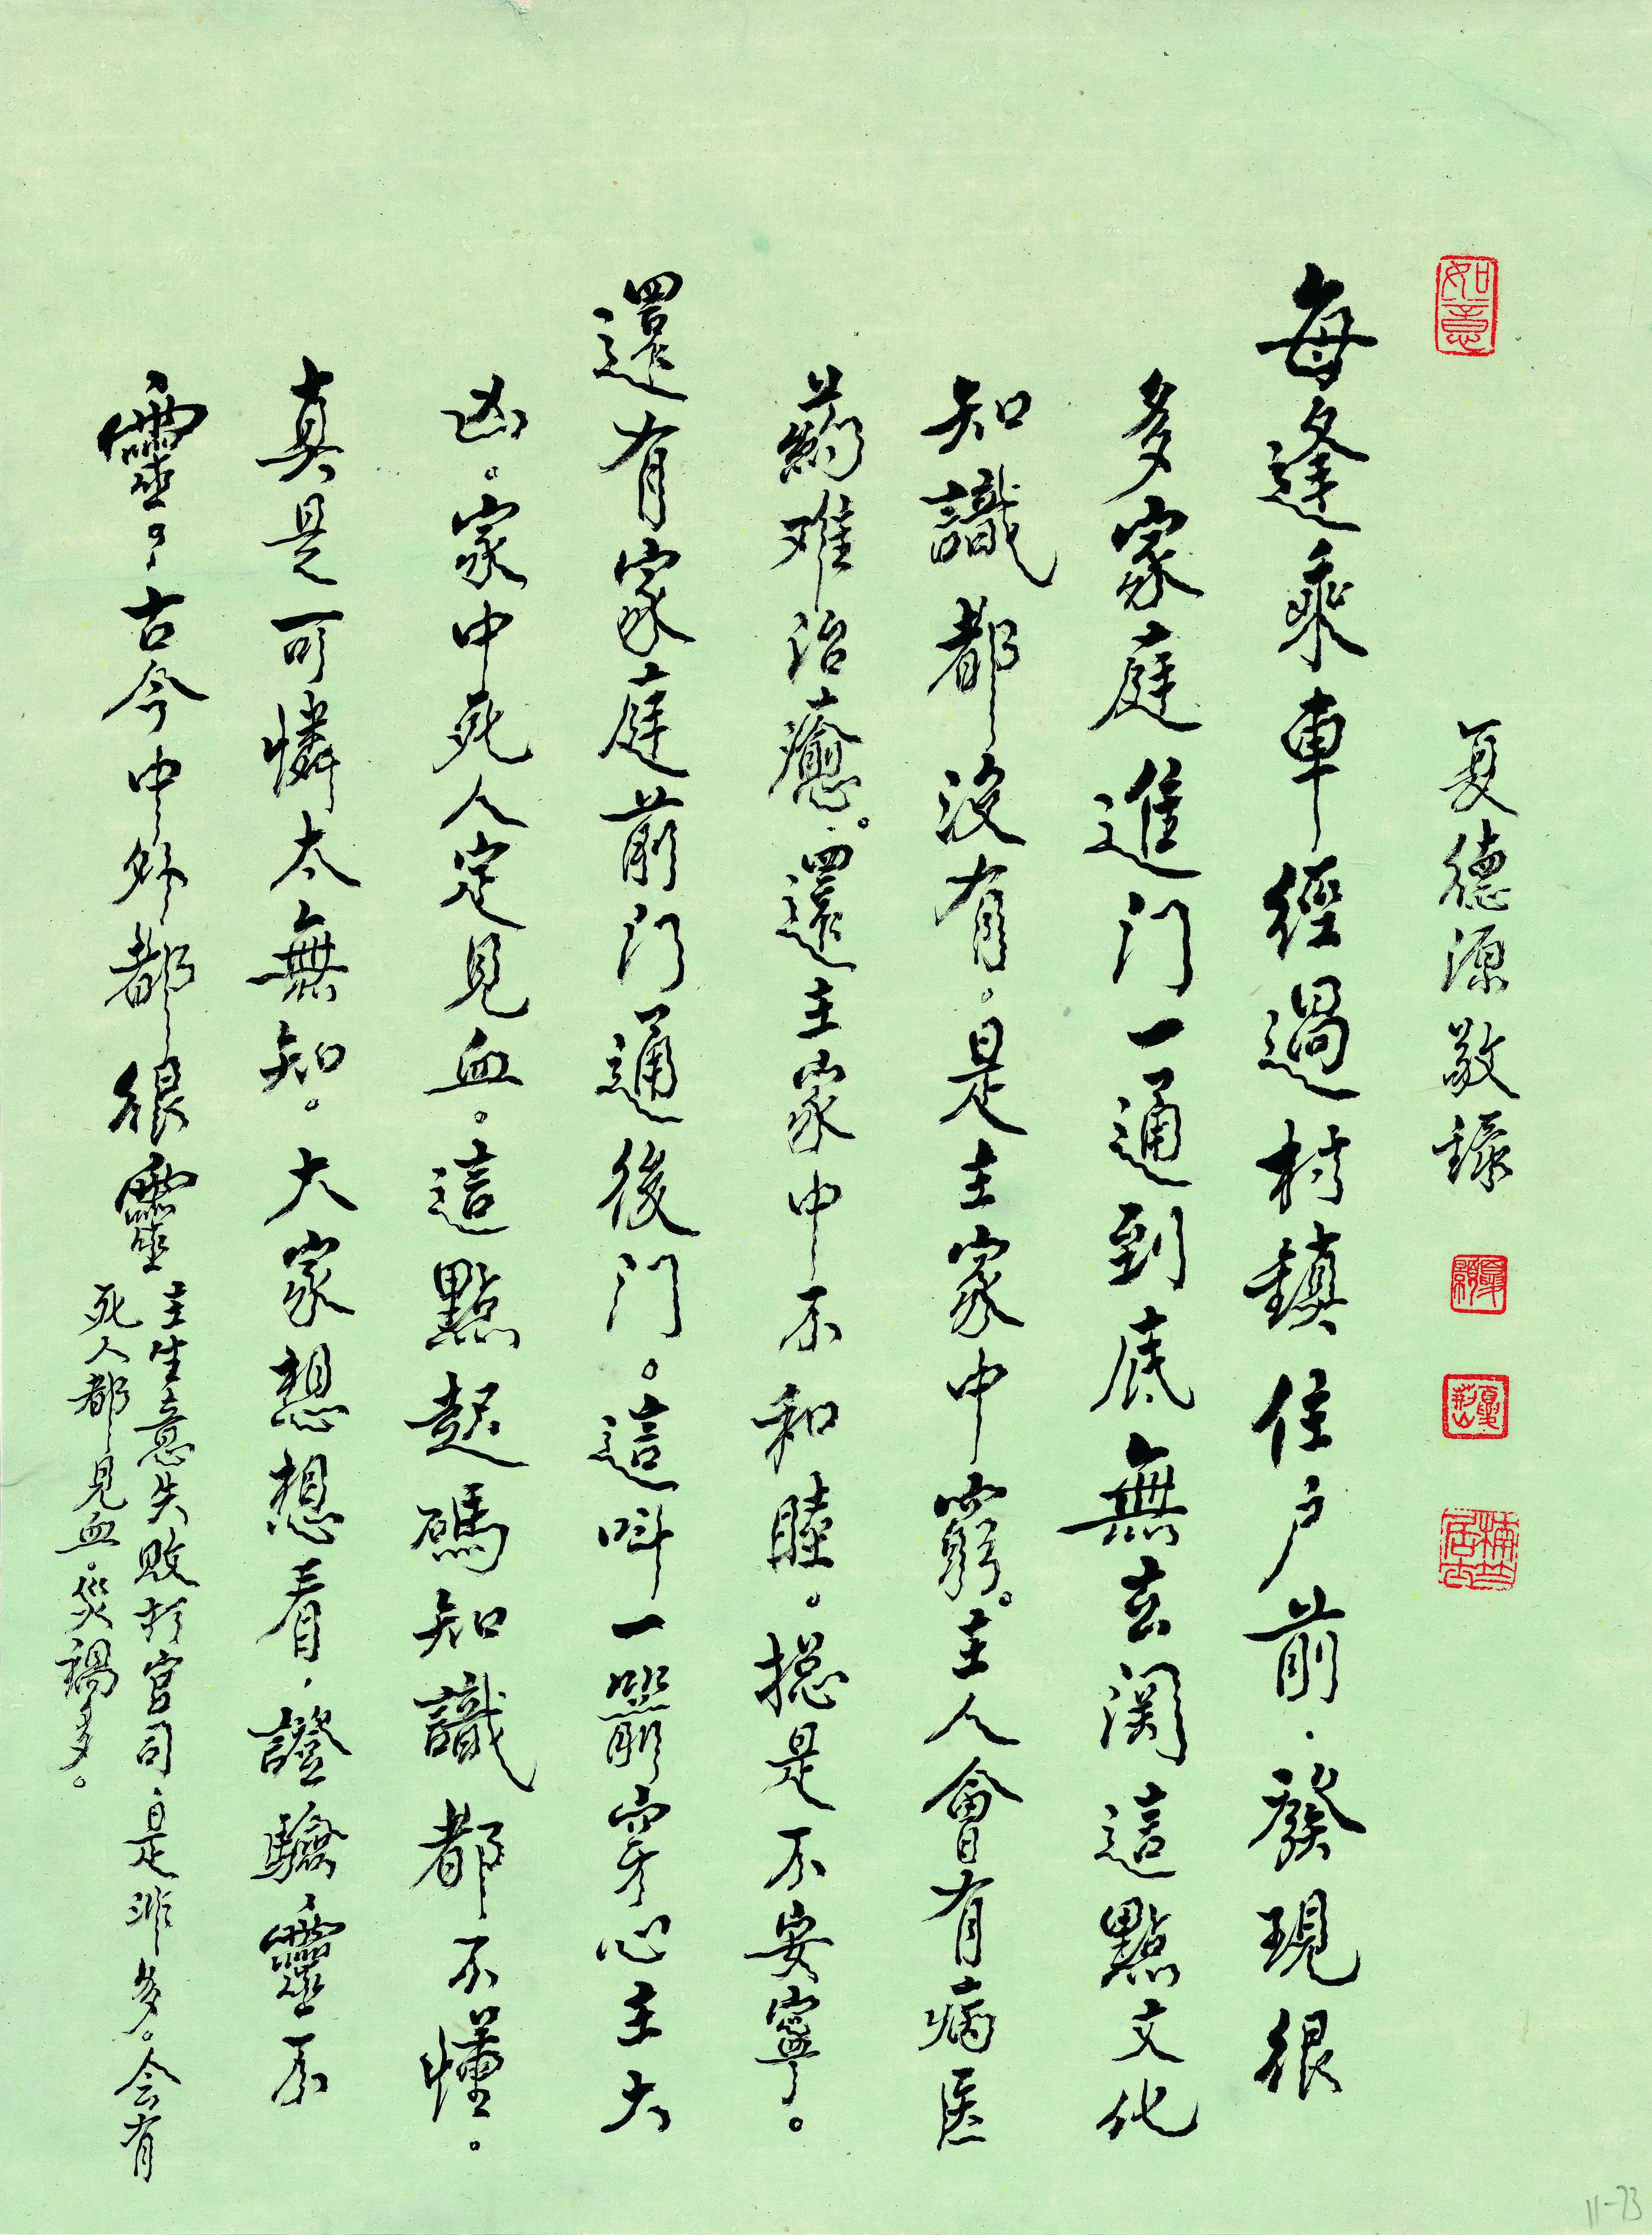 如意
夏德源敬錄
每逢乘車經過村鎮住户前．發現很
多家庭進门一通到底無玄関這點文化
知識都没有。是主家中窮。主人會有病医
葯难治癒。還主家中不和睦。捴是不安寧。
還有家庭前门通後门。這呌一箭穿心主大
凶。家中死人定見血。這點起碼知識都不懂。
真是可憐太無知。大家想想看．證驗靈不
靈？古今中外都很靈
主生意失敗打官司．是非多。会有
死人都見血．災禍多。
11-23